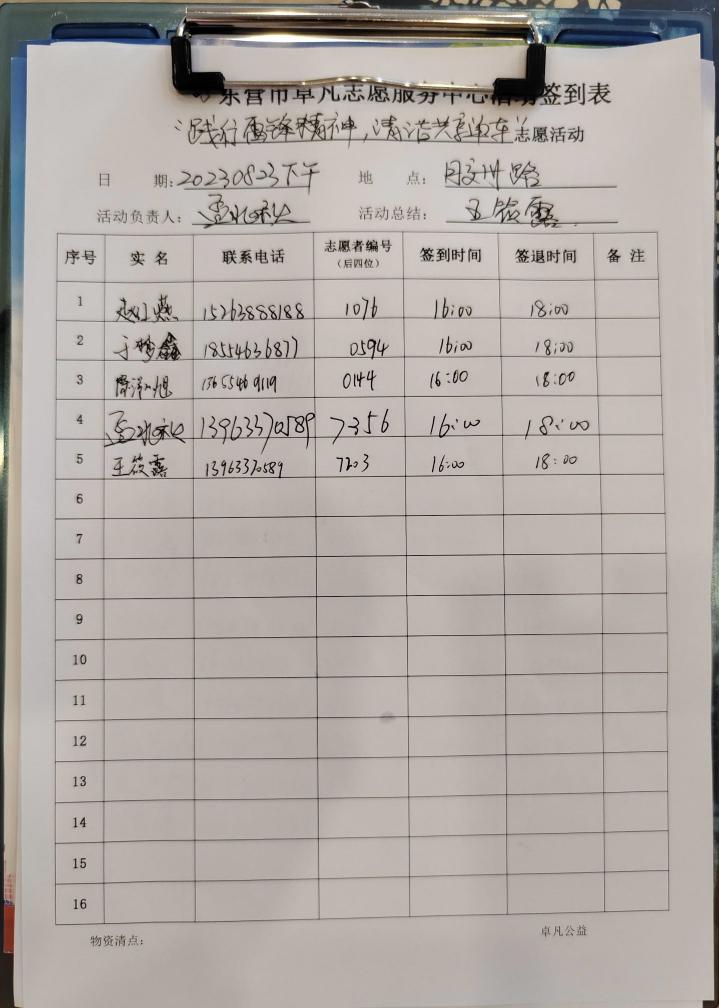 东营市卓凡志愿服务中心活动签到表
“践行雷锋精神，清洁共享单车”志愿活动
日 期：20230823下午 地 点：胶州路
活动负责人： 活动总结：王筱露
序号 实名 联系电话 志愿者编号（后四位） 签到时间 签退时间 备注
1 15263888188 1076 16:00 18:00
2 于梦鑫 18554636877 0594 16:00 18:00
3 13655469119 0144 16:00 18:00
4 13963370589 7356 16:00 18:00
5 王筱露 13963370589 7203 16:00 18:00
6
7
8
9
10
11
12
13
14
15
16
物资清点：
卓凡公益